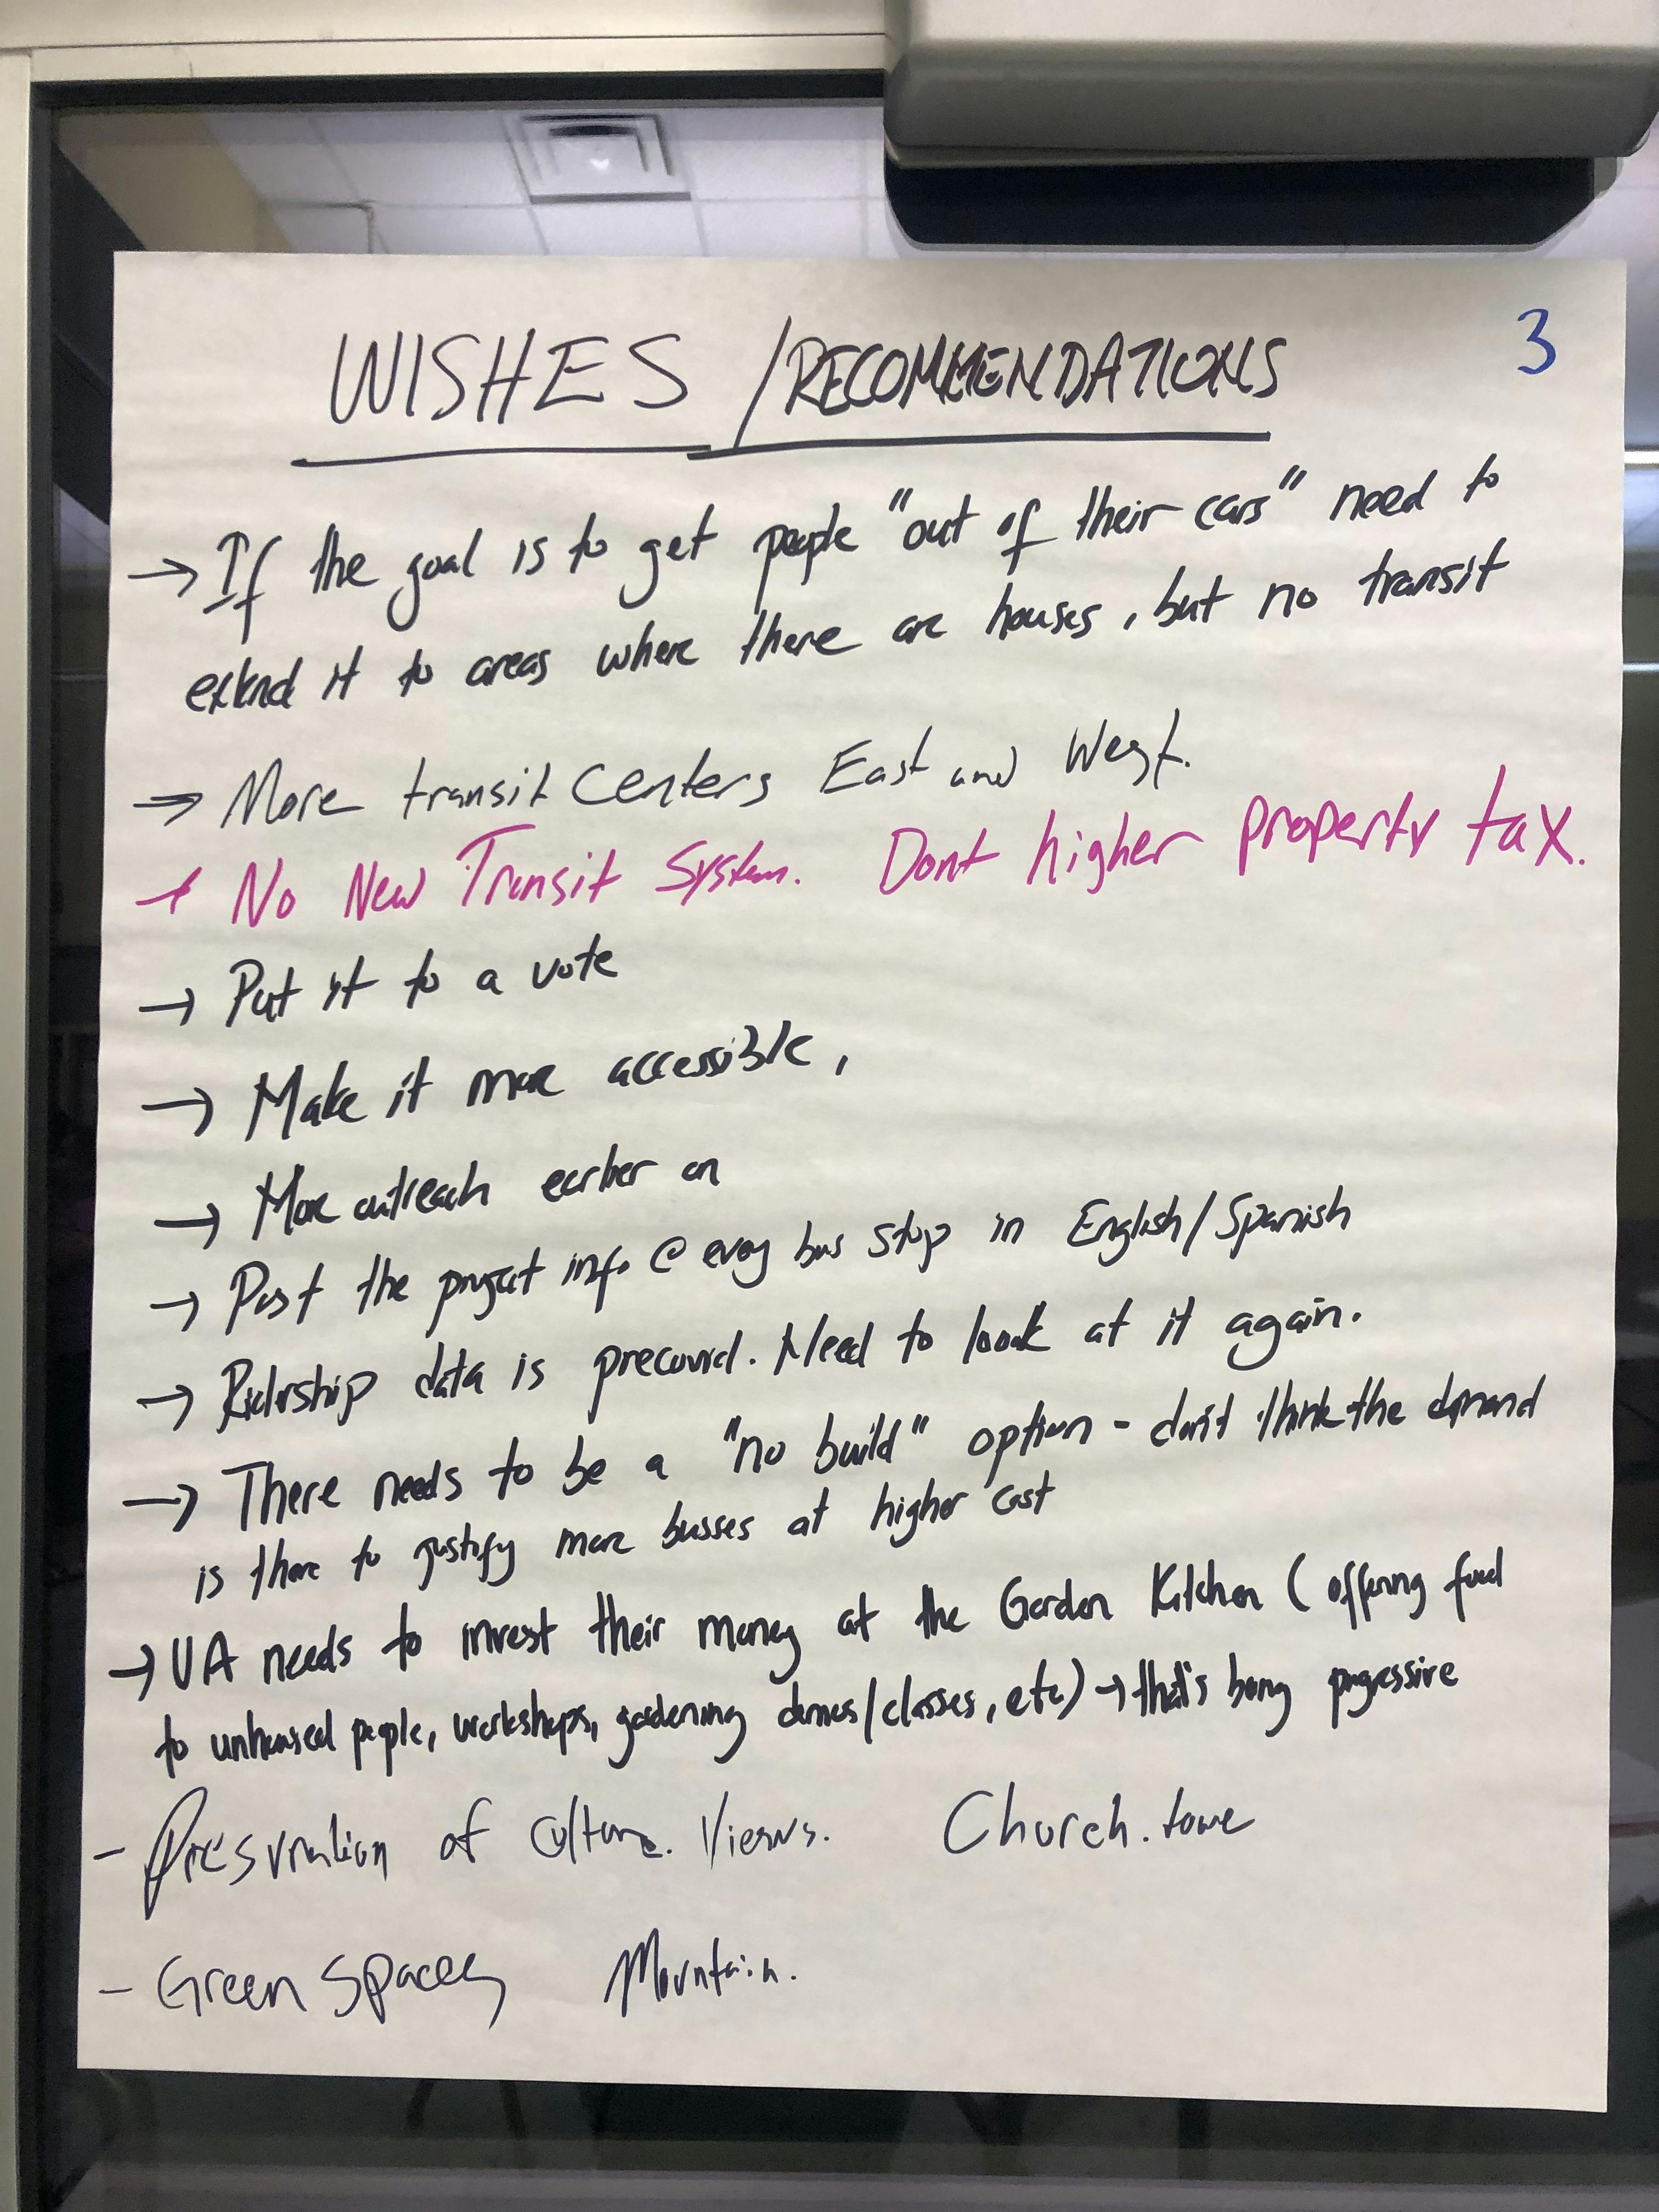 3
WISHES / RECOMMENDATIONS
→ If the goal is to get people "out of their cars" need to
extend it to areas where there are houses, but no transit
→ More transit centers East and West.
No New Transit System. Dont higher property tax.
→ Put it to a vote
→ Make it more accessible,
→ More outreach earlier on
→ Post the project info. @ every bus stop in English/Spanish
→ Ridership data is precovid. Need to look at it again.
→ There needs to be a "no build" option - don't think the demand
is there to justify more busses at higher cost
→ UA needs to invest their money at the Garden Kitchen (offering food
to unhoused people, workshops, gardening demos/classes, etc) → that's being progressive
- Preservation of culture. Views. Church.
- Green Spaces Mountain.